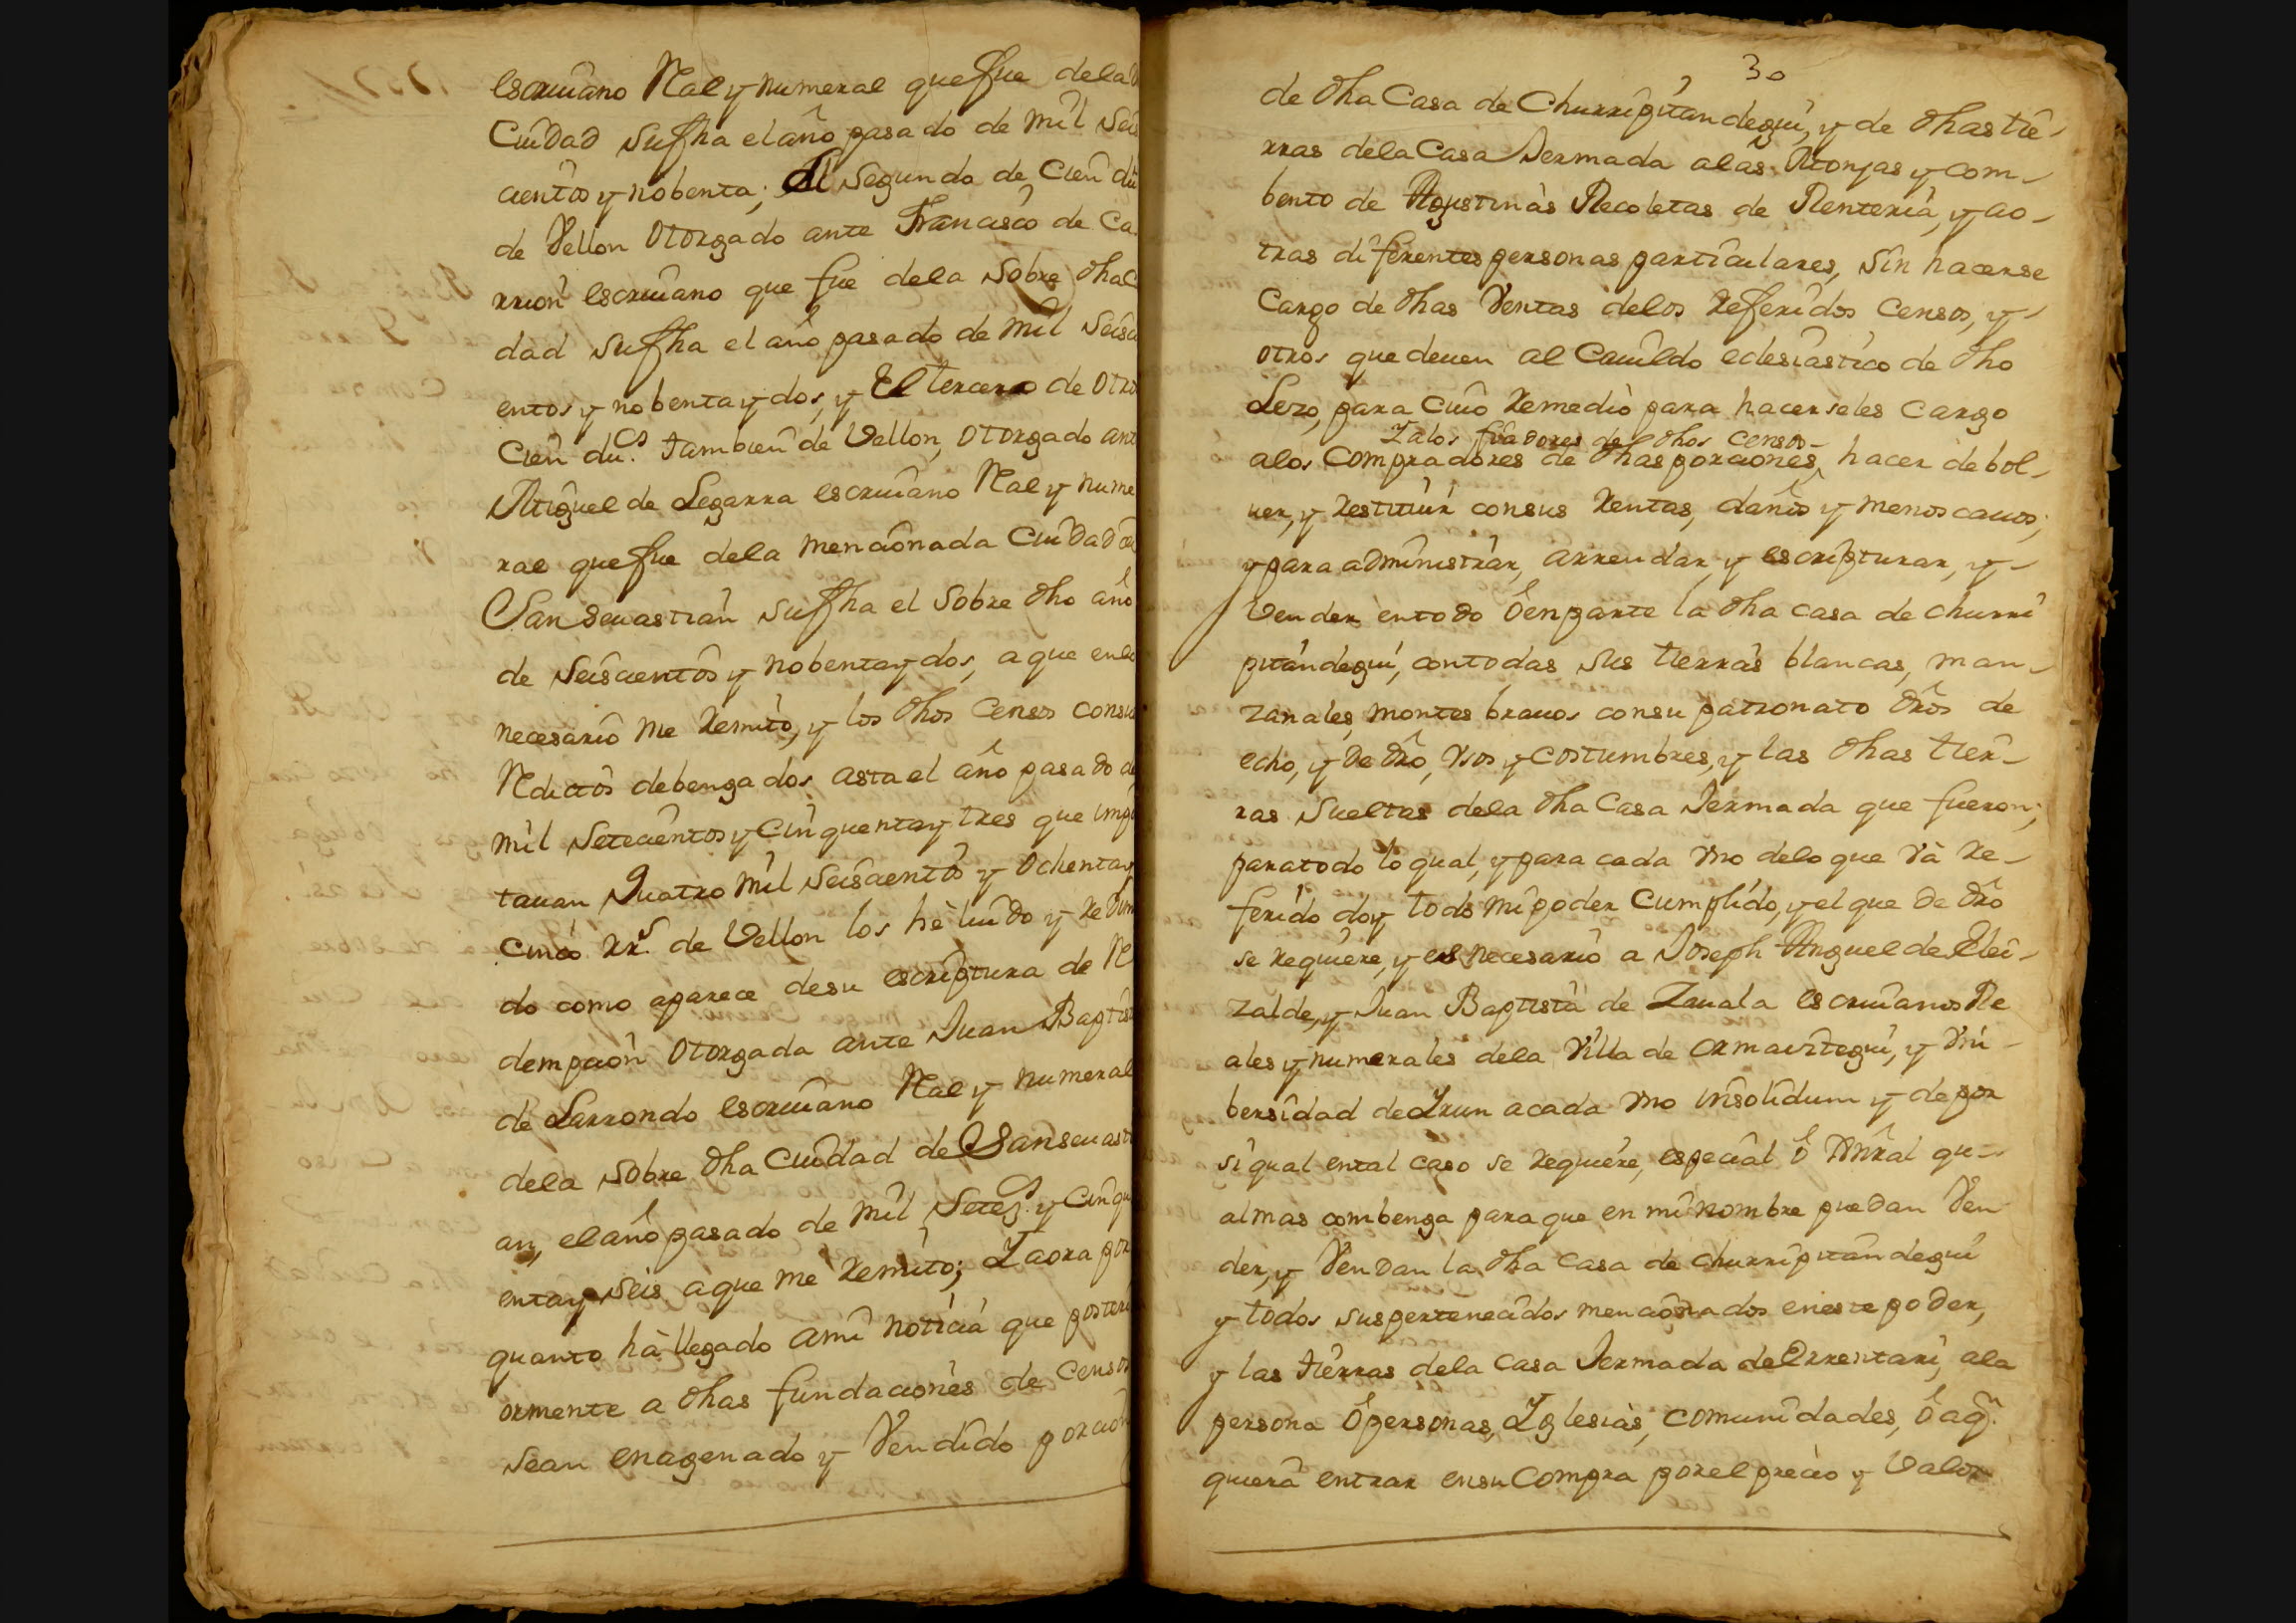 escriuano Real y numeral que fue dela
Ciudad su fha el año pasado de mil seis
cientos y nobenta; El segundo de cien du
de Vellon otorgado ante Francisco de Ca
rrion escriuano que fue dela sobre dha
dad su fha el año pasado de mil seisci
entos y nobenta y dos, y El tercero de otro
cien du.s tambien de Vellon, otorgado ant
Miguel de Legarra escriuano Real y nume
ral que fue dela mencionada Ciudad de
San Seuastian su fha el sobre dho año
de seiscientos y nobenta y dos, a que en lo
necesario me remito, y los dhos censos con sus
Reditos debengados asta el año pasado de
mil setecientos y cinquenta y tres que impo
tauan quatro mil seiscientos y ochenta y
cinco rr.s de Vellon los hè luido y redimi
do como aparece de su escriptura de Re
dempcion otorgada ante Juan Baptis
de Larrondo escriuano Real y numeral
dela sobre dha Ciudad de San Seuasti
an, el año pasado de mil Setez.s y cinqu
enta y seis a que me remito; Y aora por
quanto hà llegado a mi noticia que posteri
ormente a dhas fundaciones de censos
sean enagenado y Vendido porcion
30
de dha Casa de Churripitandegui, y de dhas tie-
rras dela Casa Iermada alas Monjas y com-
bento de Agustinas Recoletas de Renteria, y ao-
tras diferentes personas particulares, sin hacerse
Cargo de dhas Ventas delos referidos censos, y
otros que deuen al Cauildo eclesiastico de dho
Lezo, para cuio remedio para hacerseles cargo
Ỳ alos fiadores de dhos censos-
alos compradores de dhas porciones, hacer debol-
uer, y restituir con sus rentas, daños y menoscauos;
y para administrar, arrendar, y escripturar, y-
Vender en todo ò en parte la dha casa de churri
pitandegui, con todas sus tierras blancas, man-
zanales, montes brauos con su patronato dros de
echo, y de dro, Vsos y costumbres, y las dhas tier-
ras sueltas dela dha Casa Iermada que fueron;
para todo lo qual, y para cada Vno delo que Và re-
ferido doy todo mi poder cumplido, y el que de dro
se requiere, y es necesario a Joseph Anguel de Elei-
zalde, y Juan Baptista de Zauala escriuanos Re
ales y numerales dela Villa de ormaiztegui, y Vni-
bersidad de Yrun acada Vno insolidum y de por
si qual en tal caso se requiere, especial ò Gnral qu-
al mas combenga para que en mi nombre puedan Ven
der, y Vendan la dha casa de churripitandegui
y todos sus pertenecidos mencionados en este poder,
y las tierras dela casa Iermada de Errentari, ala
persona ò personas, Yglesias, comunidades, ò aq.n
quiera entrar en su Compra por el precio y Valor